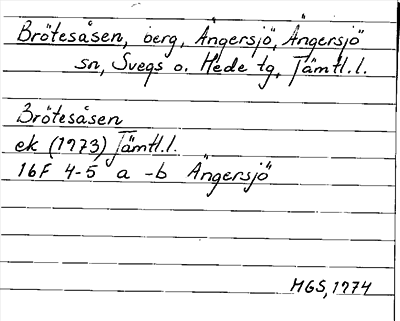 Brötesåsen, berg, Ängersjö, Ängersjö
sn, Svegs o. Hede tg, Jämtl.l.
Brötesåsen
ek (1973) Jämtl.l.
16F 4-5 a -b Ängersjö
MGS, 1974